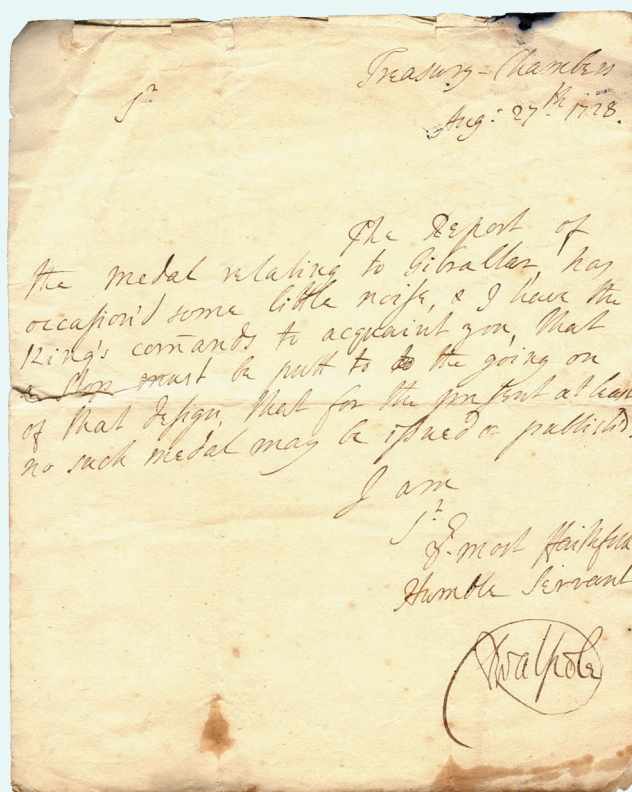 Treasury - Chambers
Sr
Aug: 27th. 1728.
The Report of
the medal relating to Gibraltar, has
occasion'd some little noise, & I have the
King's comands to acquaint you, that
a stop must be putt to the going on
of that design, that for the present at least
no such medal may be issued or published.
I am
Sr
Yr most faithfull
Humble Servant
RWalpole